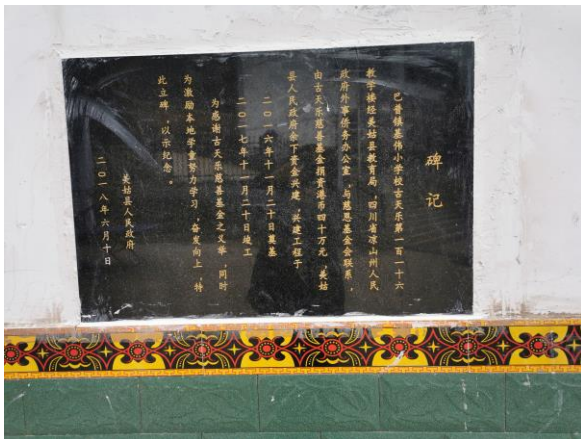 碑记
巴普镇基伟小学校古天乐第一百一十六
教学楼经美姑县教育局、四川省凉山州人民
政府外事侨务办公室，与慈恩基金会联系，
由古天乐慈善基金捐资港币四十万元，美姑
县人民政府余下资金兴建，兴建工程于
二〇一六年十一月二十日奠基
二〇一七年十一月二十日竣工
为感谢古天乐慈善基金之义举，同时
为激励本地学童努力学习，奋发向上，特
此立碑，以示纪念。
美姑县人民政府
二〇一八年六月十日